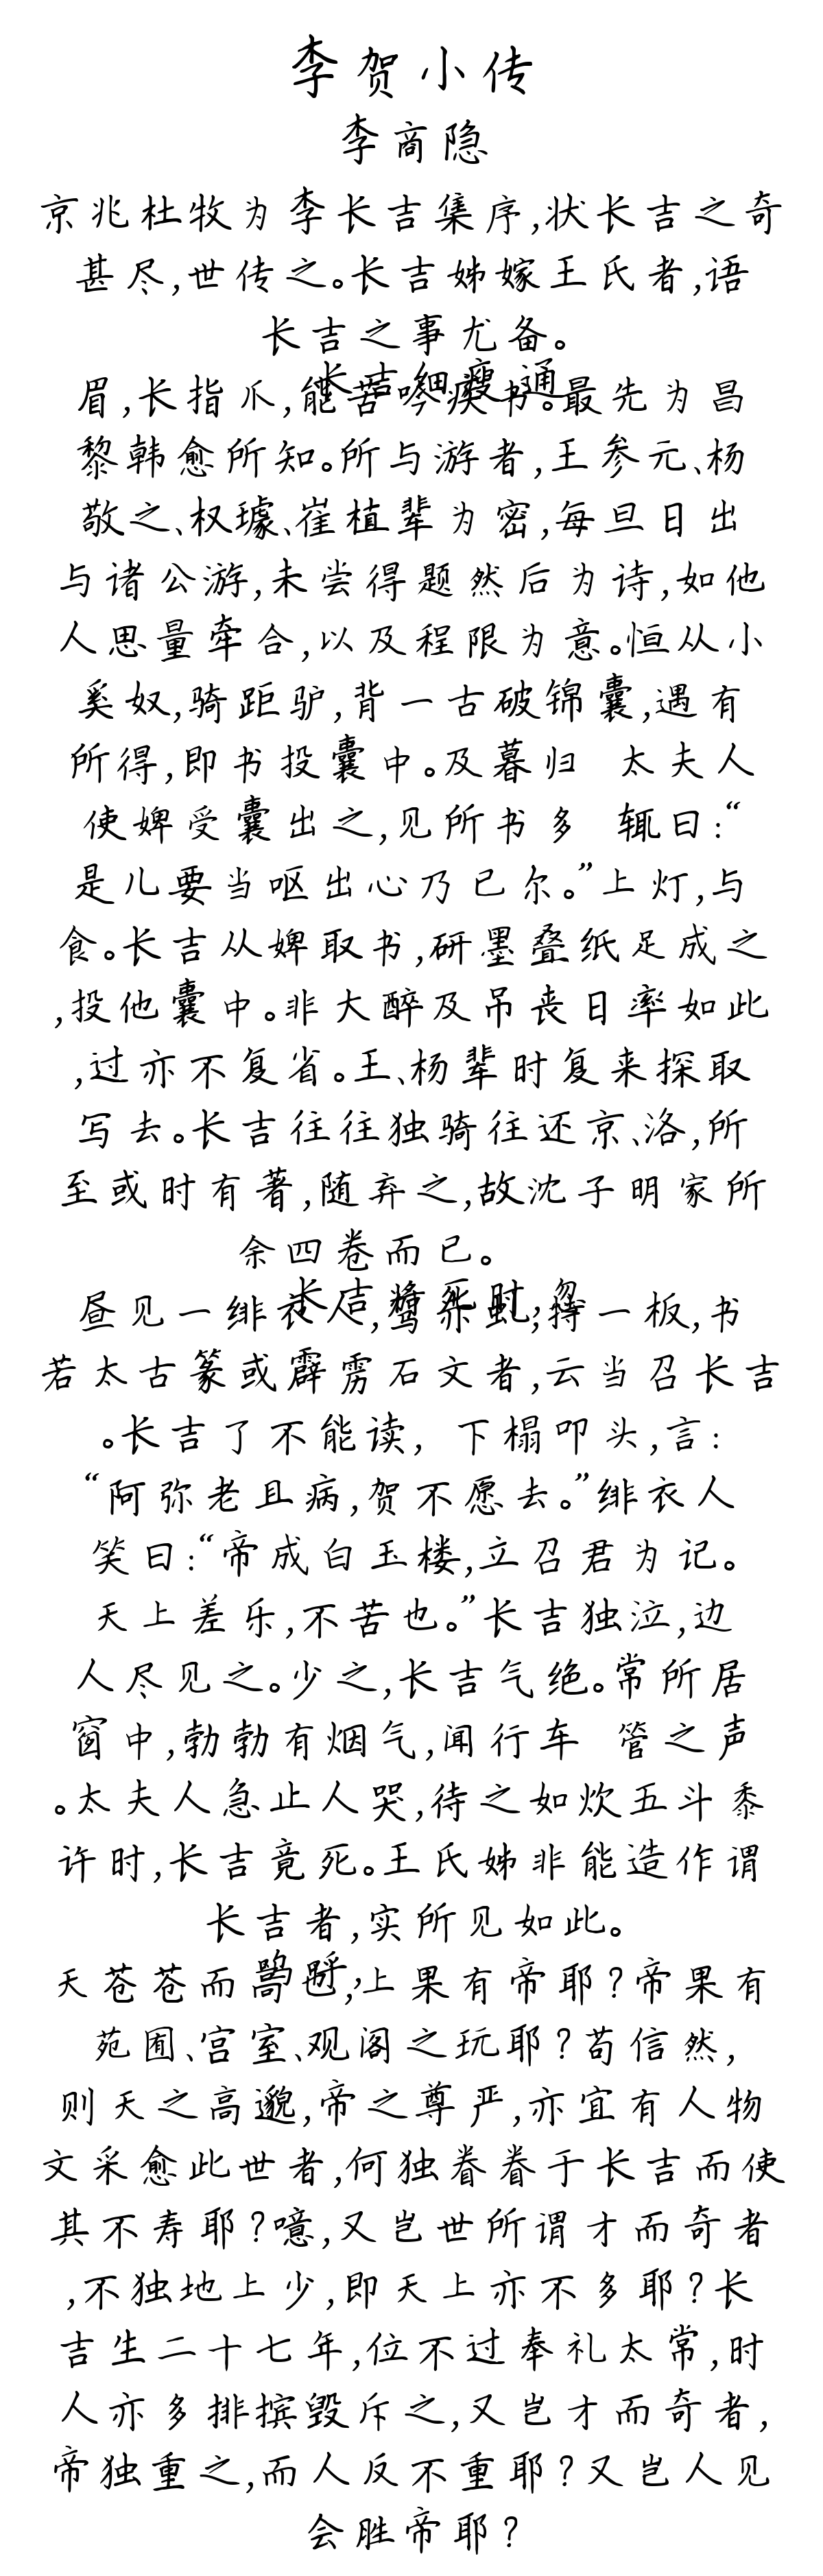 李贺小传
李商隐
京兆杜牧为李长吉集序,状长吉之奇
甚尽,世传之。长吉姊嫁王氏者,语
长吉之事尤备。
长吉细瘦,通
眉,长指爪,能苦吟疾书。最先为昌
黎韩愈所知。所与游者,王参元、杨
敬之、权璩、崔植辈为密,每旦日出
与诸公游,未尝得题然后为诗,如他
人思量牵合,以及程限为意。恒从小
奚奴,骑距驴,背一古破锦囊,遇有
所得,即书投囊中。及暮归 太夫人
使婢受囊出之,见所书多 辄曰:“
是儿要当呕出心乃已尔。”上灯,与
食。长吉从婢取书,研墨叠纸足成之
,投他囊中。非大醉及吊丧日率如此
,过亦不复省。王、杨辈时复来探取
写去。长吉往往独骑往还京、洛,所
至或时有著,随弃之,故沈子明家所
余四卷而已。
长吉将死时,忽
昼见一绯衣人,驾赤虬,持一板,书
若太古篆或霹雳石文者,云当召长吉
。长吉了不能读, 下榻叩头,言:
“阿弥老且病,贺不愿去。”绯衣人
笑曰:“帝成白玉楼,立召君为记。
天上差乐,不苦也。”长吉独泣,边
人尽见之。少之,长吉气绝。常所居
窗中,勃勃有烟气,闻行车 管之声
。太夫人急止人哭,待之如炊五斗黍
许时,长吉竟死。王氏姊非能造作谓
长吉者,实所见如此。
呜呼,
天苍苍而高也,上果有帝耶?帝果有
苑囿、宫室、观阁之玩耶?苟信然,
则天之高邈,帝之尊严,亦宜有人物
文采愈此世者,何独眷眷于长吉而使
其不寿耶?噫,又岂世所谓才而奇者
,不独地上少,即天上亦不多耶?长
吉生二十七年,位不过奉礼太常,时
人亦多排摈毁斥之,又岂才而奇者,
帝独重之,而人反不重耶?又岂人见
会胜帝耶?